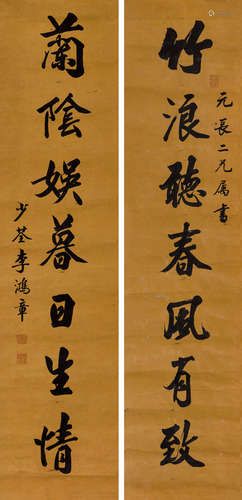 竹浪聽春風有致
元長二兄屬書
蘭陰娛暮日生情
少荃李鴻章